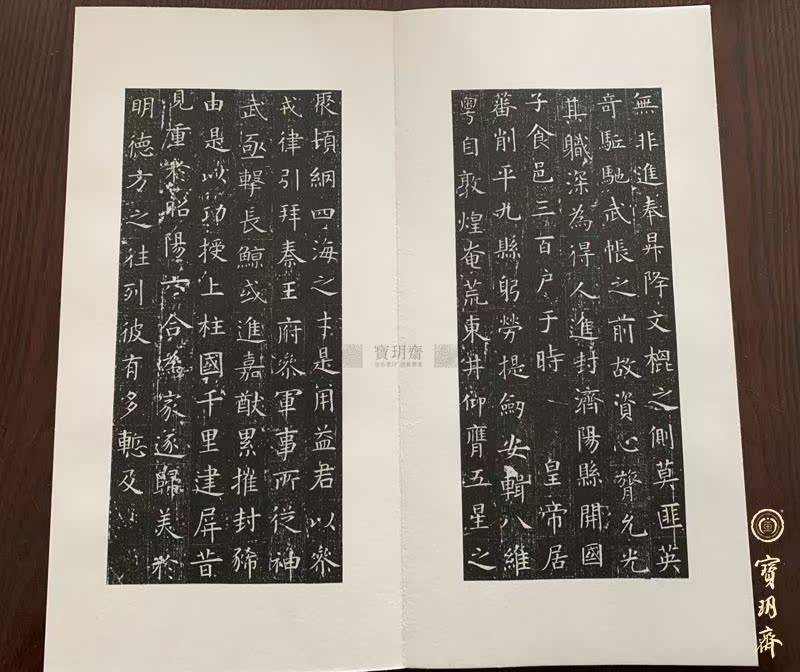 無非進奉昇降文榥之側莫匪英
奇駈馳武帳之前故資心膂允光
其職深為得人進封濟陽縣開國
子食邑三百户于時 皇帝居
蕃削平九縣躬勞提劔安輯八維
粤自敦煌奄荒東井仰膺五星之
聚頃綱四海之才是用益君以叅
戎律引拜秦王府叅軍事所從神
武亟擊長鯨或進嘉猷累摧封豨
由是以功授上柱國千里建屏昔
見重於昭陽六合為家逐歸美於
明德方之往列彼有多慙及
寶玥齋
寶玥齋